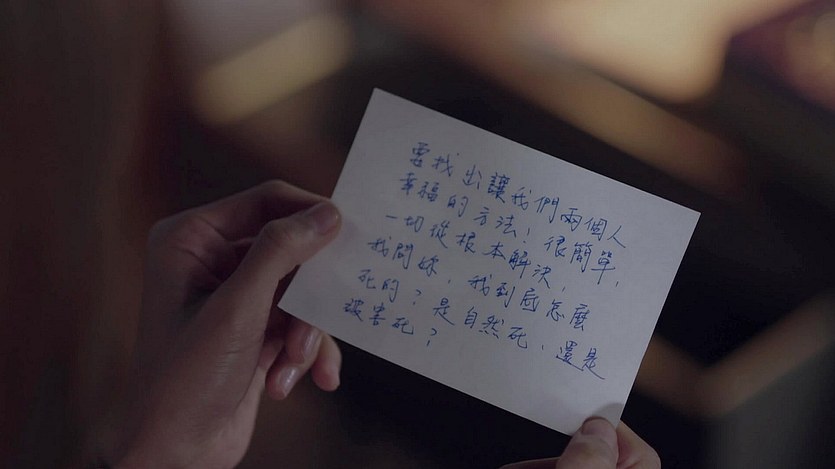 要找出讓我們兩個人
幸福的方法！很簡單，
一切從根本解決，
我問妳，我到底怎麼
死的？是自然死、還是
被害死？